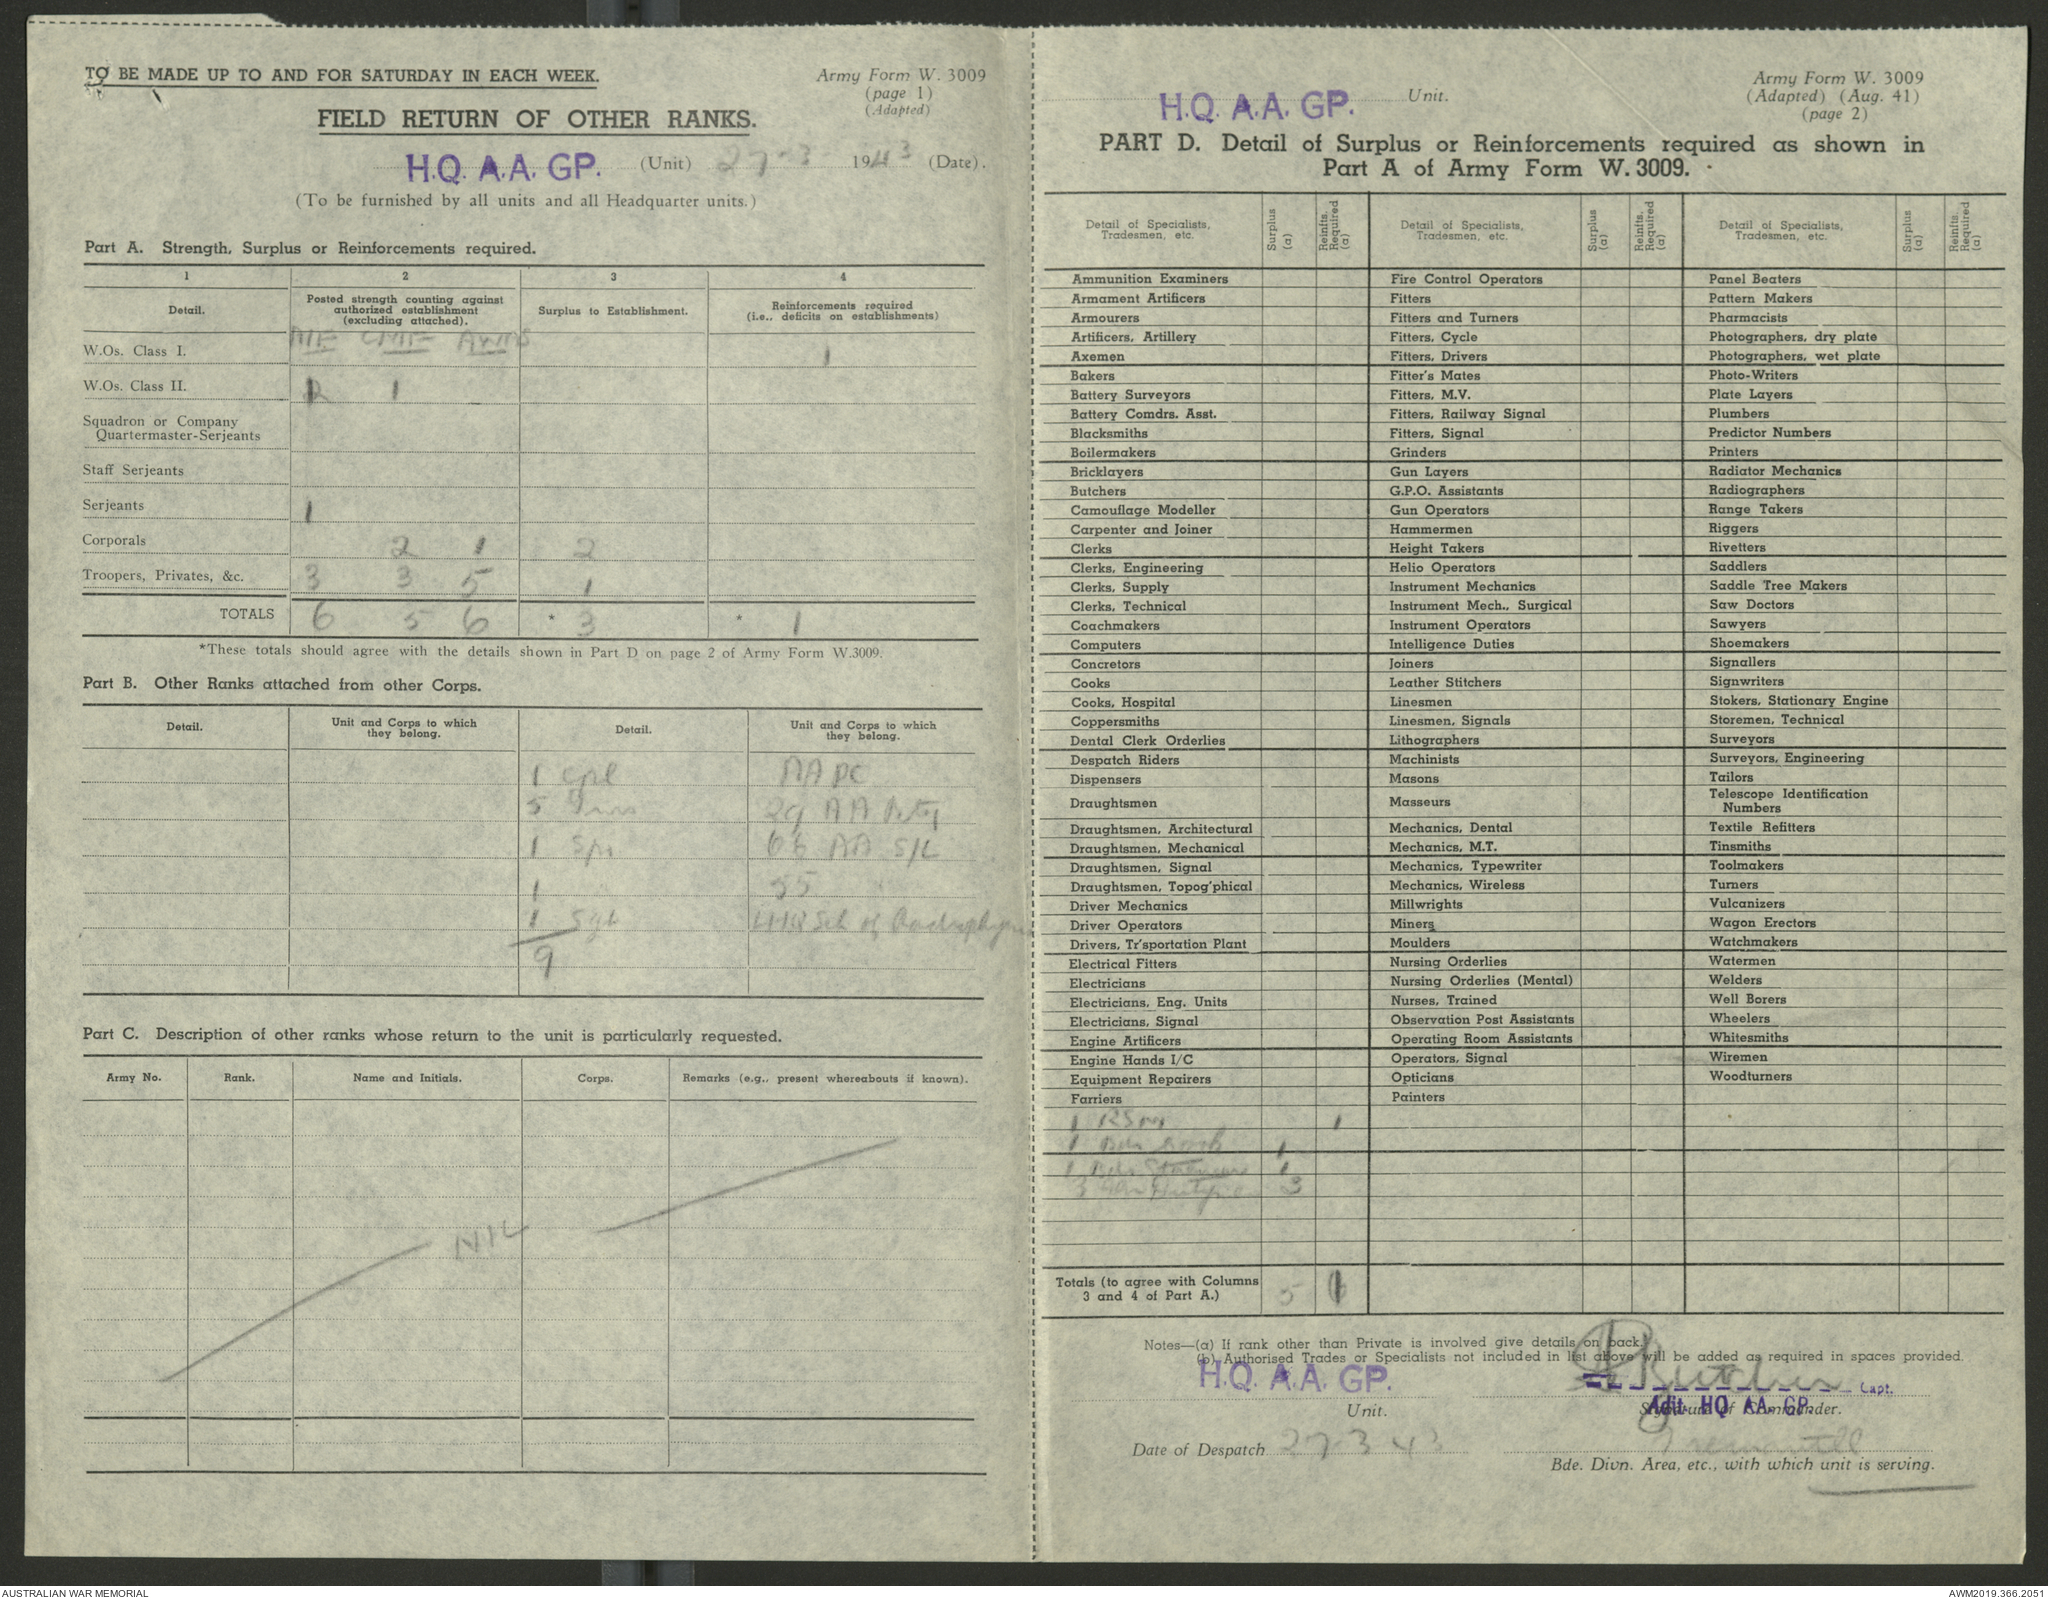 TO BE MADE UP TO AND FOR SATURDAY IN EACH WEEK.
Army Form W. 3009
(page 1)
(Adapted)
FIELD RETURN OF OTHER RANKS.
H.Q. A.A. GP. (Unit) 27-3- 1943 (Date).
(To be furnished by all units and all Headquarter units.)
Part A. Strength, Surplus or Reinforcements required.
1 2 3 4
Detail. Posted strength counting against authorized establishment (excluding attached). Surplus to Establishment. Reinforcements required (i.e., deficits on establishments)
AIF CMF AWAS
W.Os. Class I. 1
W.Os. Class II. 2 1
Squadron or Company
Quartermaster-Serjeants
Staff Serjeants
Serjeants 1
Corporals 2 1 2
Troopers, Privates, &c. 3 3 5 1
TOTALS 6 5 6 * 3 * 1
*These totals should agree with the details shown in Part D on page 2 of Army Form W.3009.
Part B. Other Ranks attached from other Corps.
Detail. Unit and Corps to which they belong. Detail. Unit and Corps to which they belong.
1 Cpl AAPC
5 Gnrs 29 AA Bty
1 Spr 66 AA S/L
1 35
1 Sgt LHQ Sch of
9
Part C. Description of other ranks whose return to the unit is particularly requested.
Army No. Rank. Name and Initials. Corps. Remarks (e.g., present whereabouts if known).
NIL
H.Q. A.A. GP. Unit.
Army Form W. 3009
(Adapted) (Aug. 41)
(page 2)
PART D. Detail of Surplus or Reinforcements required as shown in
Part A of Army Form W. 3009.
Detail of Specialists, Tradesmen, etc. Surplus (a) Reinfts. Required (a) Detail of Specialists, Tradesmen, etc. Surplus (a) Reinfts. Required (a) Detail of Specialists, Tradesmen, etc. Surplus (a) Reinfts. Required (a)
Ammunition Examiners Fire Control Operators Panel Beaters
Armament Artificers Fitters Pattern Makers
Armourers Fitters and Turners Pharmacists
Artificers, Artillery Fitters, Cycle Photographers, dry plate
Axemen Fitters, Drivers Photographers, wet plate
Bakers Fitter's Mates Photo-Writers
Battery Surveyors Fitters, M.V. Plate Layers
Battery Comdrs. Asst. Fitters, Railway Signal Plumbers
Blacksmiths Fitters, Signal Predictor Numbers
Boilermakers Grinders Printers
Bricklayers Gun Layers Radiator Mechanics
Butchers G.P.O. Assistants Radiographers
Camouflage Modeller Gun Operators Range Takers
Carpenter and Joiner Hammermen Riggers
Clerks Height Takers Rivetters
Clerks, Engineering Helio Operators Saddlers
Clerks, Supply Instrument Mechanics Saddle Tree Makers
Clerks, Technical Instrument Mech., Surgical Saw Doctors
Coachmakers Instrument Operators Sawyers
Computers Intelligence Duties Shoemakers
Concretors Joiners Signallers
Cooks Leather Stitchers Signwriters
Cooks, Hospital Linesmen Stokers, Stationary Engine
Coppersmiths Linesmen, Signals Storemen, Technical
Dental Clerk Orderlies Lithographers Surveyors
Despatch Riders Machinists Surveyors, Engineering
Dispensers Masons Tailors
Draughtsmen Masseurs Telescope Identification Numbers
Draughtsmen, Architectural Mechanics, Dental Textile Refitters
Draughtsmen, Mechanical Mechanics, M.T. Tinsmiths
Draughtsmen, Signal Mechanics, Typewriter Toolmakers
Draughtsmen, Topog'phical Mechanics, Wireless Turners
Driver Mechanics Millwrights Vulcanizers
Driver Operators Miners Wagon Erectors
Drivers, Tr'sportation Plant Moulders Watchmakers
Electrical Fitters Nursing Orderlies Watermen
Electricians Nursing Orderlies (Mental) Welders
Electricians, Eng. Units Nurses, Trained Well Borers
Electricians, Signal Observation Post Assistants Wheelers
Engine Artificers Operating Room Assistants Whitesmiths
Engine Hands I/C Operators, Signal Wiremen
Equipment Repairers Opticians Woodturners
Farriers Painters
1 RSM 1
1 Bdr 1
1 Bdr 1
3 3
Totals (to agree with Columns 3 and 4 of Part A.) 5 1
Notes—(a) If rank other than Private is involved give details on back.
(b) Authorised Trades or Specialists not included in list above will be added as required in spaces provided.
H.Q. A.A. GP. Capt.
Unit. Adjt. HQ AA. GP.
Signature of Commander.
Date of Despatch 27-3 43 Fremantle
Bde. Divn. Area, etc., with which unit is serving.
AUSTRALIAN WAR MEMORIAL
AWM2019.366.2051